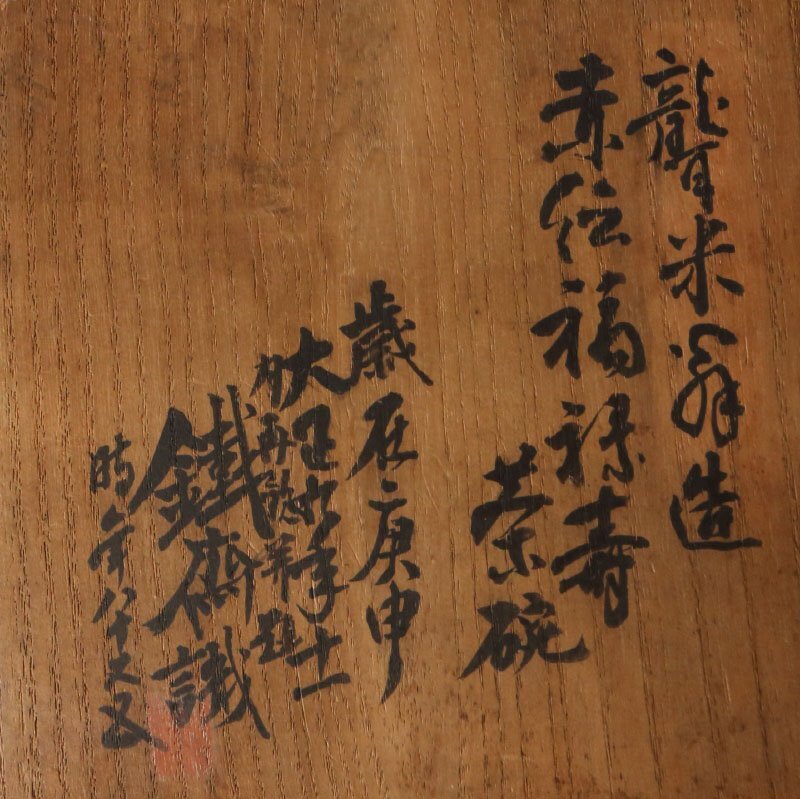 聾米翁造
赤絵福禄寿
茶碗
歳在庚申
大正九年十一
月再観并題
鐵斎識
時年八十又五